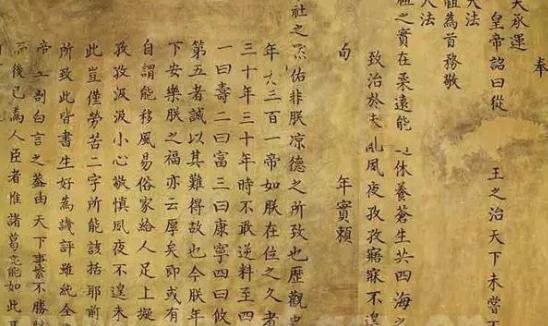 奉
天承運
皇帝詔曰從 王之治天下未嘗不
天法
祖為首務敬
天法
祖之實在柔遠能 之休養蒼生共四海之
致治於未亂夙夜孜孜寤寐不遑
旬 年實賴
社之 佑非朕凉德之所致也歷觀史
年 三百一帝如朕在位之久者
三十年三十年時不敢逆料至四
一曰壽二曰富三曰康寧四曰攸
第五者誠以其難得故也今朕年
下安樂朕之福亦云厚矣即或有
自謂能移風易俗家給人足上擬
孜孜汲汲小心敬慎夙夜不遑未
此豈僅勞苦二字所能該括耶前
所致此皆書生好為譏評雖純全
帝 剖白言之蓋由天下事繁不勝
而後已為人臣者惟諸葛亮能如此